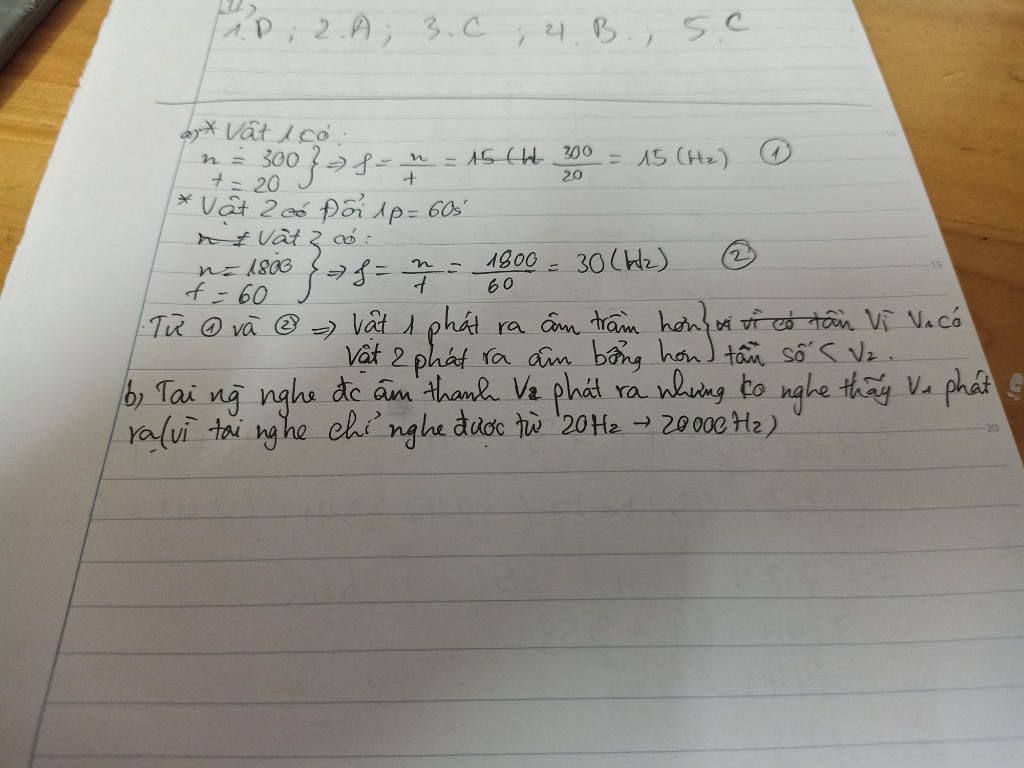 1.D ; 2.A ; 3.C ; 4.B. ; 5.C
a) * Vật 1 có :
n = 300 } => f = n/t = 15 (H 300/20 = 15 (Hz) ①
t = 20
* Vật 2 có Đổi 1p = 60s
n t Vật 2 có :
n = 1800 } => f = n/t = 1800/60 = 30 (Hz) ②
t = 60
Từ ① và ② => Vật 1 phát ra âm trầm hơn } vì vì có tần Vì V1 có
Vật 2 phát ra âm bổng hơn } tần số < V2.
b, Tai ng nghe đc âm thanh V2 phát ra nhưng ko nghe thấy V1 phát
ra (vì tai nghe chỉ nghe được từ 20Hz → 20000Hz)
15
20